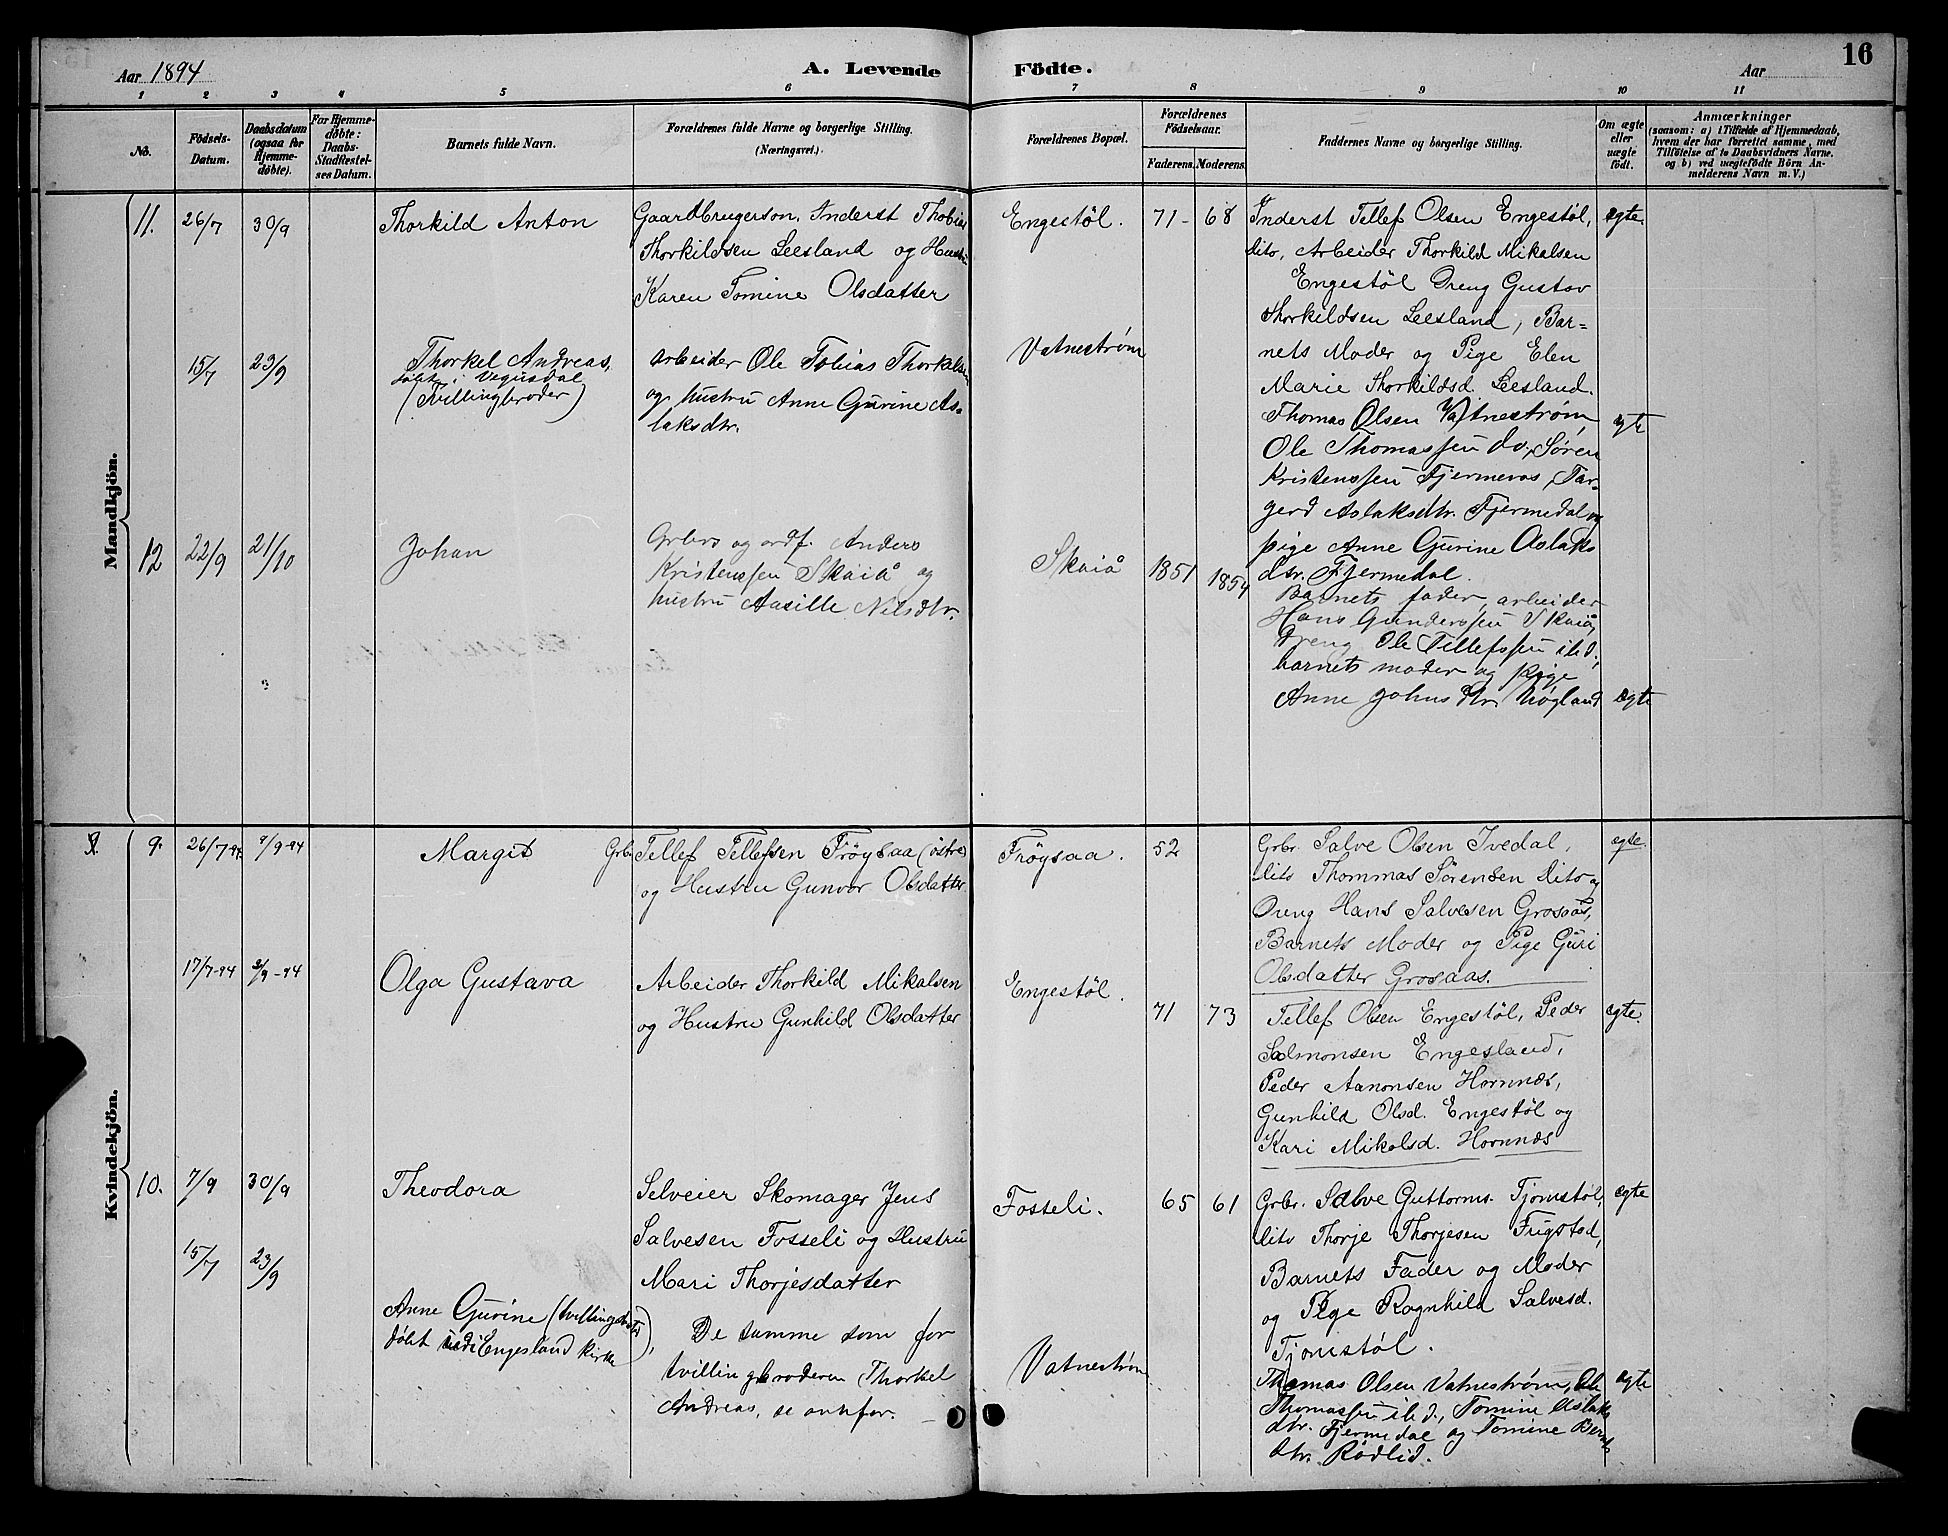 Aar 1894
A. Levende Födte.
Aar
16
1 2 3 4 5 6 7 8 9 10 11
No.
Födsels-Datum.
Daabsdatum (ogsaa for Hjemme-döbte).
For Hjemme-döbte: Daabs-Stadfæstel-ses Datum.
Barnets fulde Navn.
Forældrenes fulde Navne og borgerlige Stilling.
(Næringsvei.)
Forældrenes Bopæl.
Forældrenes Födselsaar.
Faderens. Moderens.
Faddernes Navne og borgerlige Stilling.
Om ægte eller uægte födt.
Anmærkninger
(saasom: a) i Tilfælde af Hjemmedaab,
hvem der har forrettet samme, med
Tilföielse af to Daabsvidners Navne.
og b) ved uægtefödte Börn An-
melderens Navn m. V.)
Mandkjön.
11. 26/7 30/9 Thorkild Anton
Gaardbrugerson, Inderst Thobias
Thorkildsen Leesland og Hustru
Karen Tomine Olsdatter
Engestøl. 71- 68
Inderst Tellef Olsen Engestøl,
dito, Arbeider Thorkild Mikalsen
Engestøl Dreng Gustav
Thorkildsen Leesland, Bar-
nets Moder og Pige Elen
Marie Thorkildsd. Leesland.
ægte.
15/7 23/9 Thorkel Andreas,
døbt i Vegusdal
(Tvillingbroder)
arbeider Ole Tobias Thorkelsen
og hustru Anne Gurine As-
laksdtr.
Vatnestrøm
Thomas Olsen Vatnestrøm
Ole Thomassen do, Søren
Kristenssen Fjermeros, Tar-
gerd Aslaksdtr. Fjermedal og
pige Anne Gurine Aslaks
dtr. Fjermedal.
ægte
12 22/9 21/10 Johan
Grbr og ordf. Anders
Kristenssen Skaiå og
hustru Aasille Nilsdtr.
Skaiå 1851 1854
Barnets fader, arbeider
Hans Gunderssen Skaiå,
Dreng Ole Tellefssen ibd.,
barnets moder og pige
Anne Johnsdtr. Høgland
ægte
Kvindekjön.
9. 26/7-94. 9/9-94 Margit
Grbr. Tellef Tellefsen Frøysaa (østre)
og Hustru Gunvor Olsdatter
Frøysaa. 52
Grbr. Salve Olsen Ivedal,
dito Thommas Sørensen dito og
Dreng Hans Salvesen Grosaas,
Barnets Moder og Pige Guri
Olsdatter Grosaas.
ægte.
17/7-94 2/9-94 Olga Gustava
Arbeider Thorkild Mikalsen
og Hustru Gunhild Olsdatter
Engestøl. 71 73
Tellef Olsen Engestøl, Peder
Salmonsen Engesland,
Peder Aanonsen Hornnæs,
Gunhild Olsd. Engestøl og
Kari Mikalsd. Hornnæs
ægte.
10. 7/9 30/9 Theodora
Selveier Skomager Jens
Salvesen Fosseli og Hustru
Mari Thorjesdatter
Fosseli. 65 61
Grbr. Salve Guttorms. Tjomstøl,
dito Thorje Thorjesen Frigstad,
Barnets Fader og Moder
og Pige Ragnhild Salvesd.
Tjomstøl.
ægte
15/7 23/9
Anne Gurine (tvillingdatter),
døbt i Engesland kirke
De samme som for
tvillingbroderen Thorkel
Andreas, se ovnfor.
Vatnestrøm
Thomas Olsen Vatnestrøm, Ole
Thomassen ibd., Tomine Aslaks
dtr. Fjermedal og Tomine Bernts
dtr. Rødlid.
ægte